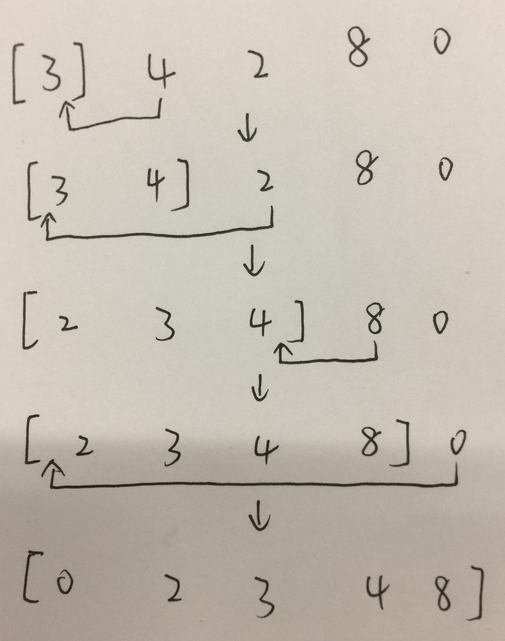 [3] 4 2 8 0
[3 4] 2 8 0
[2 3 4] 8 0
[2 3 4 8] 0
[0 2 3 4 8]